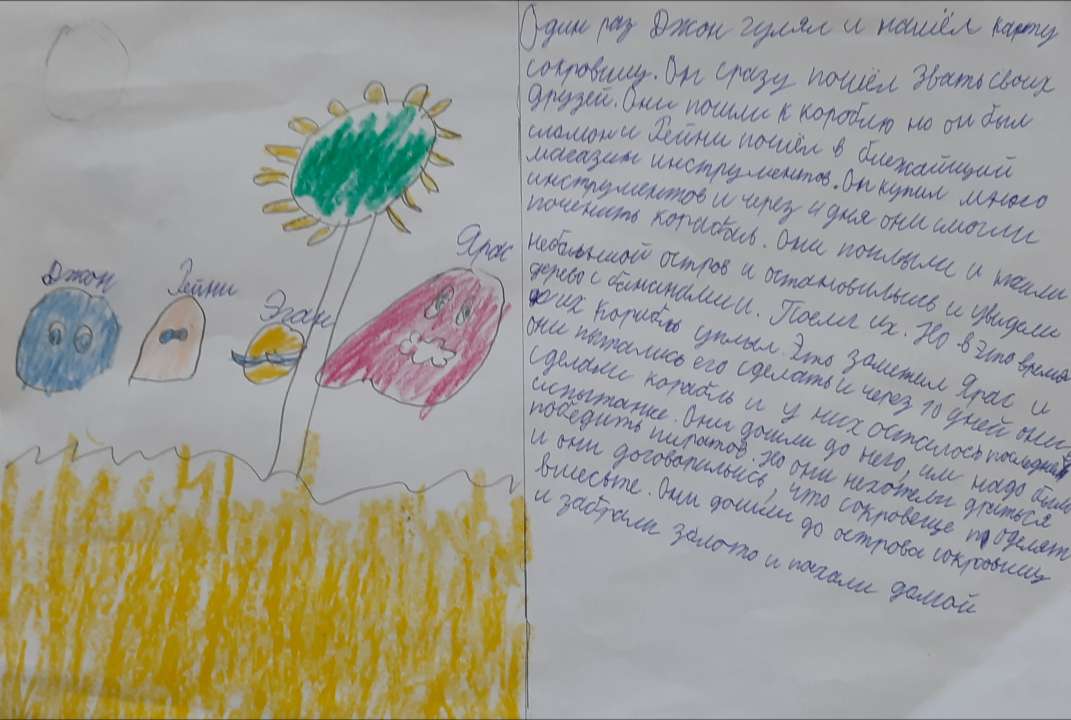 Джон
Рейни
Эган
Ярас
Один раз Джон гулял и нашёл карту
сокровищ. Он сразу пошёл звать своих
друзей. Они пошли к кораблю но он был
сломан и Рейни пошёл в ближайщий
магазин инструментов. Он купил много
инструментов и через 4 дня они смогли
починить корабыль. Они поплыли и нашли
небольшой остров и остановились и увидели
дерево с бананами. Поели их. Но в это время
их корабль уплыл. Это заметил Ярас и
они пытались его сделать и через 10 дней они
сделали корабль и у них осталось последнее
испытание. Они дошли до него, им надо было
победить пиратов. Но они нехотели драться
и они договорились, что сокровеще поделят
вместьте. Они дошли до острова сокровищ
и забрали золото и поехали домой